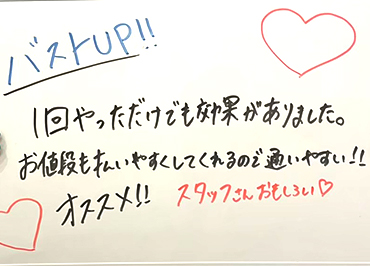 バストUP!!
1回やっただけでも効果がありました。
お値段も払いやすくしてくれるので通いやすい!!
オススメ!! スタッフさんおもしろい♡